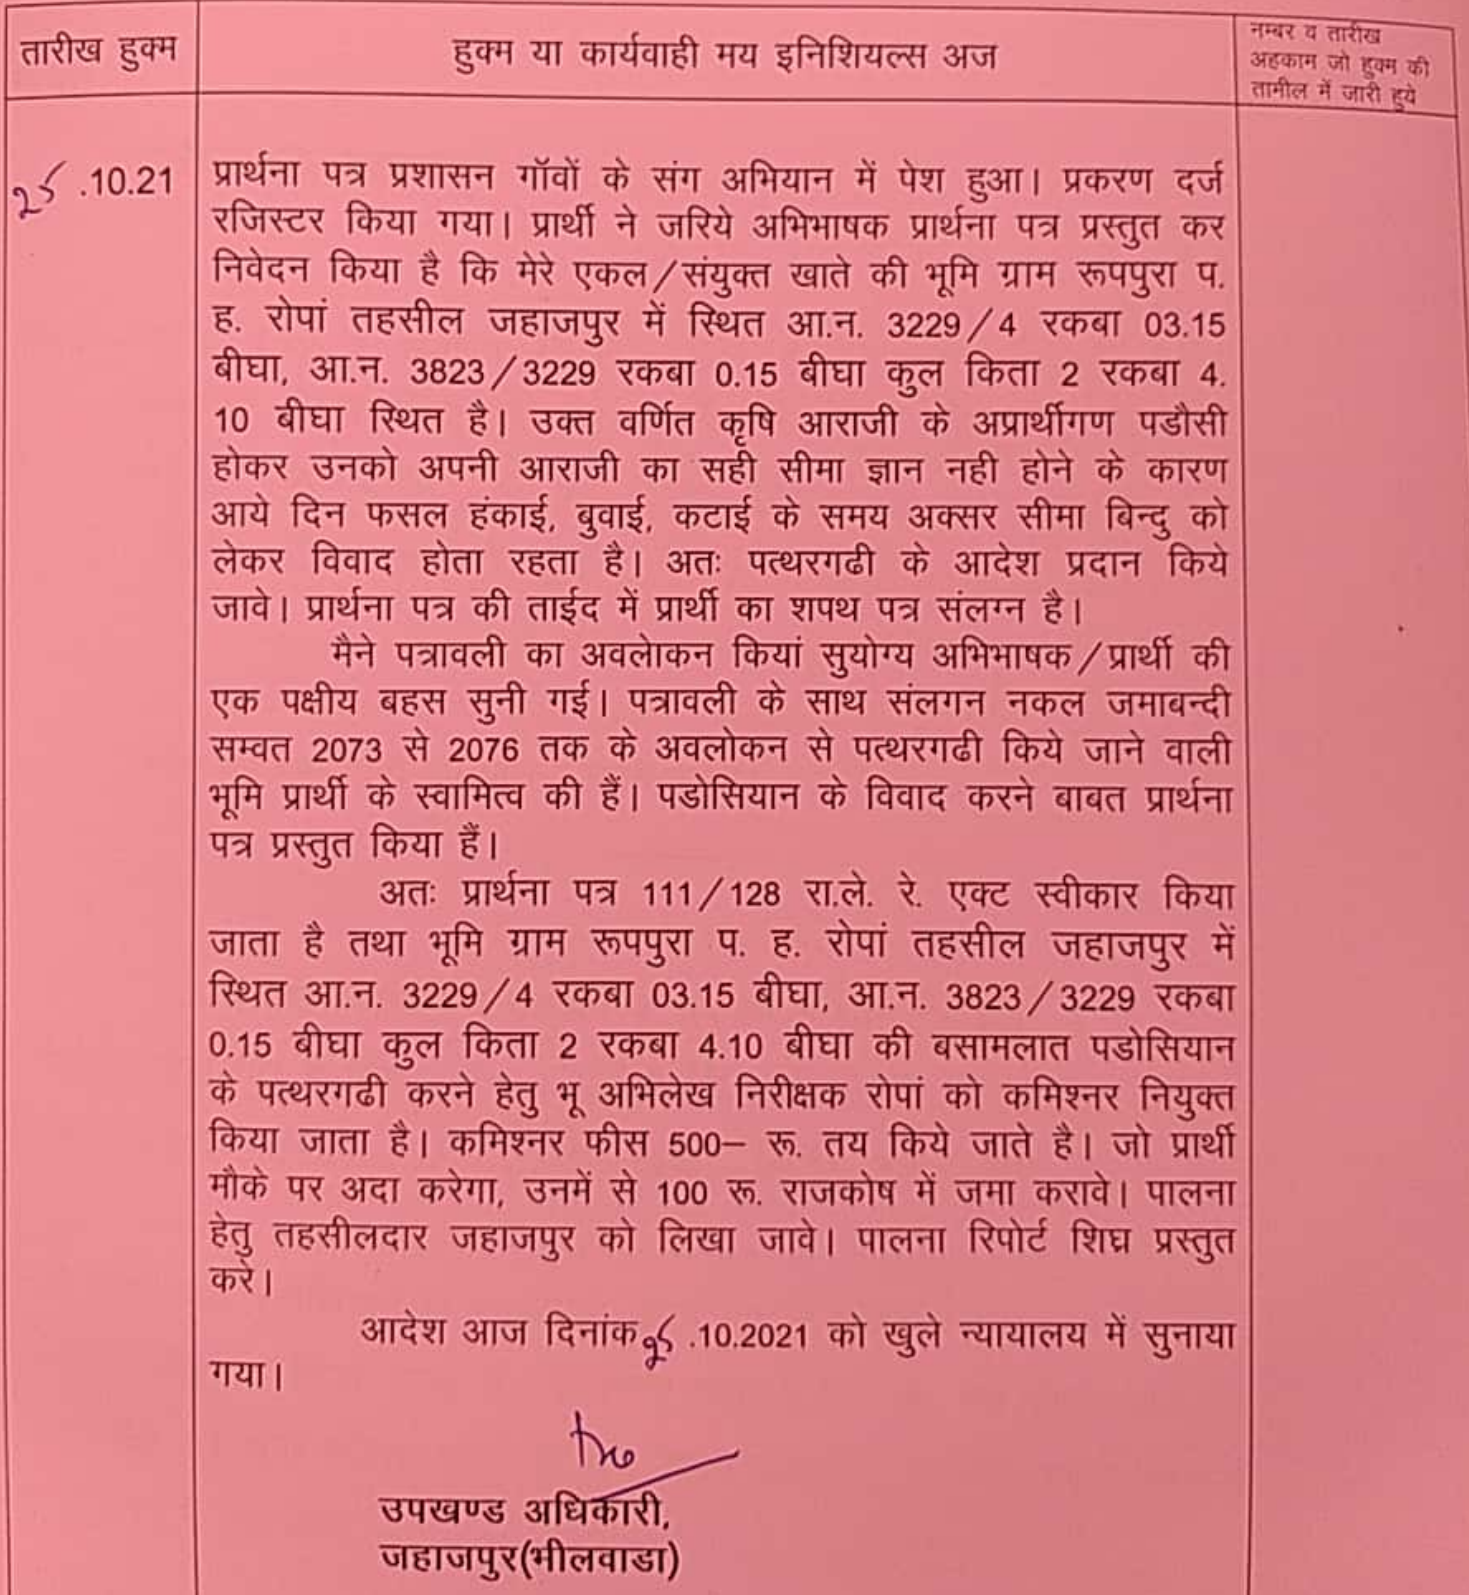 तारीख हुक्म
हुक्म या कार्यवाही मय इनिशियल्स अज
नम्बर व तारीख
अहकाम जो हुक्म की
तामील में जारी हुये
25 .10.21
प्रार्थना पत्र प्रशासन गॉवों के संग अभियान में पेश हुआ। प्रकरण दर्ज
रजिस्टर किया गया। प्रार्थी ने जरिये अभिभाषक प्रार्थना पत्र प्रस्तुत कर
निवेदन किया है कि मेरे एकल/संयुक्त खाते की भूमि ग्राम रूपपुरा प.
ह. रोपां तहसील जहाजपुर में स्थित आ.न. 3229/4 रकबा 03.15
बीघा, आ.न. 3823/3229 रकबा 0.15 बीघा कुल किता 2 रकबा 4.
10 बीघा स्थित है। उक्त वर्णित कृषि आराजी के अप्रार्थीगण पडौसी
होकर उनको अपनी आराजी का सही सीमा ज्ञान नही होने के कारण
आये दिन फसल हंकाई, बुवाई, कटाई के समय अक्सर सीमा बिन्दु को
लेकर विवाद होता रहता है। अतः पत्थरगढी के आदेश प्रदान किये
जावे। प्रार्थना पत्र की ताईद में प्रार्थी का शपथ पत्र संलग्न है।
मैने पत्रावली का अवलेाकन कियां सुयोग्य अभिभाषक/प्रार्थी की
एक पक्षीय बहस सुनी गई। पत्रावली के साथ संलगन नकल जमाबन्दी
सम्वत 2073 से 2076 तक के अवलोकन से पत्थरगढी किये जाने वाली
भूमि प्रार्थी के स्वामित्व की हैं। पडोसियान के विवाद करने बाबत प्रार्थना
पत्र प्रस्तुत किया हैं।
अतः प्रार्थना पत्र 111/128 रा.ले. रे. एक्ट स्वीकार किया
जाता है तथा भूमि ग्राम रूपपुरा प. ह. रोपां तहसील जहाजपुर में
स्थित आ.न. 3229/4 रकबा 03.15 बीघा, आ.न. 3823/3229 रकबा
0.15 बीघा कुल किता 2 रकबा 4.10 बीघा की बसामलात पडोसियान
के पत्थरगढी करने हेतु भू अभिलेख निरीक्षक रोपां को कमिश्नर नियुक्त
किया जाता है। कमिश्नर फीस 500– रू. तय किये जाते है। जो प्रार्थी
मौके पर अदा करेगा, उनमें से 100 रू. राजकोष में जमा करावे। पालना
हेतु तहसीलदार जहाजपुर को लिखा जावे। पालना रिपोर्ट शिघ्र प्रस्तुत
करे।
आदेश आज दिनांक 25 .10.2021 को खुले न्यायालय में सुनाया
गया।
उपखण्ड अधिकारी,
जहाजपुर(भीलवाडा)